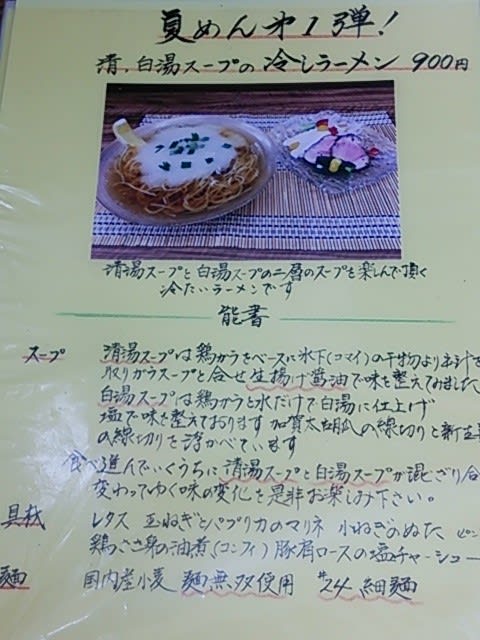 夏めん第1弾!
清,白湯スープの冷しラーメン 900円
清湯スープと白湯スープの二層のスープを楽しんで頂く
冷たいラーメンです
能書
スープ 清湯スープは鶏がらをベースに氷下(コマイ)の干物より出汁を
取りがらスープと合せ生揚げ醤油で味を整えてみました
白湯スープは鶏がらと水だけで白湯に仕上げ
塩で味を整えております 加賀太胡瓜の線切りと新生姜
の線切りを浮かべています
食べ進んでいくうちに清湯スープと白湯スープが混ざり合
変わってゆく味の変化を是非お楽しみ下さい。
具材 レタス 玉ねぎとパプリカのマリネ 小ねぎのぬた
鶏ささ身の油煮(コンフィ) 豚肩ロースの塩チャーシュー
麺 国内産小麦 麺無双使用 #24 細麺